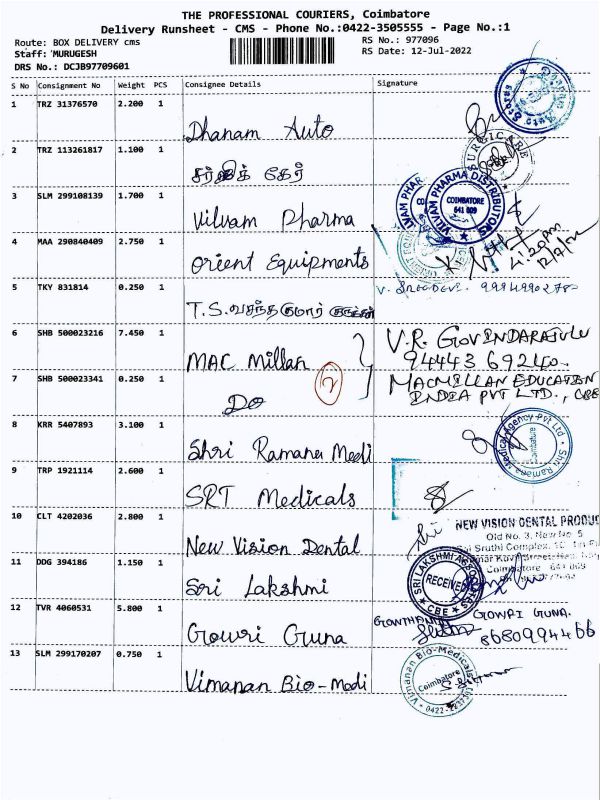 THE PROFESSIONAL COURIERS, Coimbatore
Delivery Runsheet - CMS - Phone No.:0422-3505555 - Page No.:1
Route: BOX DELIVERY cms
RS No.: 977096
Staff: 'MURUGESH
RS Date: 12-Jul-2022
DRS No.: DCJB97709601
S No Consignment No Weight PCS Consignee Details Signature
1 TRZ 31376570 2.200 1 Dhanam Auto
2 TRZ 113261817 1.100 1 சர்ஜிக் கேர் SURGICARE
3 SLM 299108139 1.700 1 Vilvam Pharma VILVAM PHARMA DISTRIBUTORS COIMBATORE 641 009
4 MAA 290840409 2.750 1 Orient Equipments 4:20pm 12/7/22
5 TKY 831814 0.250 1 T.S.வசந்தகுமார் V. SREEDEVI.
6 SHB 500023216 7.450 1 MAC Millan V.R. GOVINDARAJULU
94443 69240
7 SHB 500023341 0.250 1 DO 2 MACMILLAN EDUCATION
INDIA PVT LTD., CBE
8 KRR 5407893 3.100 1 Shri Ramana Medi Sri Ramana Medical Agency Pvt Ltd Coimbatore
9 TRP 1921114 2.600 1 SRT Medicals
10 CLT 4202036 2.800 1 New Vision Dental NEW VISION DENTAL PRODUC
Old No. 3, New No. 5
Sruthi Complex,
Coimbatore 641
11 DDG 394186 1.150 1 Sri Lakshmi SRI LAKSHMI RECEIVED CBE
12 TVR 4060531 5.800 1 Gowri Guna GOWTHAM GOWRI GUNA.
8680994466
13 SLM 299170207 0.750 1 Vimanan Bio-Medi Vimanan Bio-Medicals Coimbatore